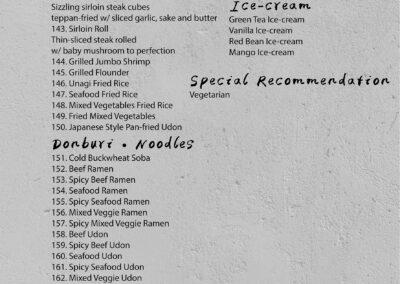 Sizzling sirloin steak cubes
teppan-fried w/ sliced garlic, sake and butter
143. Sirloin Roll
Thin-sliced steak rolled
w/ baby mushroom to perfection
144. Grilled Jumbo Shrimp
145. Grilled Flounder
146. Unagi Fried Rice
147. Seafood Fried Rice
148. Mixed Vegetables Fried Rice
149. Fried Mixed Vegetables
150. Japanese Style Pan-fried Udon
Donburi • Noodles
151. Cold Buckwheat Soba
152. Beef Ramen
153. Spicy Beef Ramen
154. Seafood Ramen
155. Spicy Seafood Ramen
156. Mixed Veggie Ramen
157. Spicy Mixed Veggie Ramen
158. Beef Udon
159. Spicy Beef Udon
160. Seafood Udon
161. Spicy Seafood Udon
162. Mixed Veggie Udon
Ice-cream
Green Tea Ice-cream
Vanilla Ice-cream
Red Bean Ice-cream
Mango Ice-cream
Special Recommendation
Vegetarian